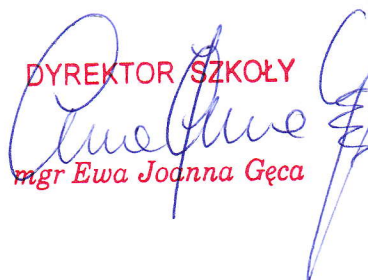 DYREKTOR SZKOŁY
mgr Ewa Joanna Gęca